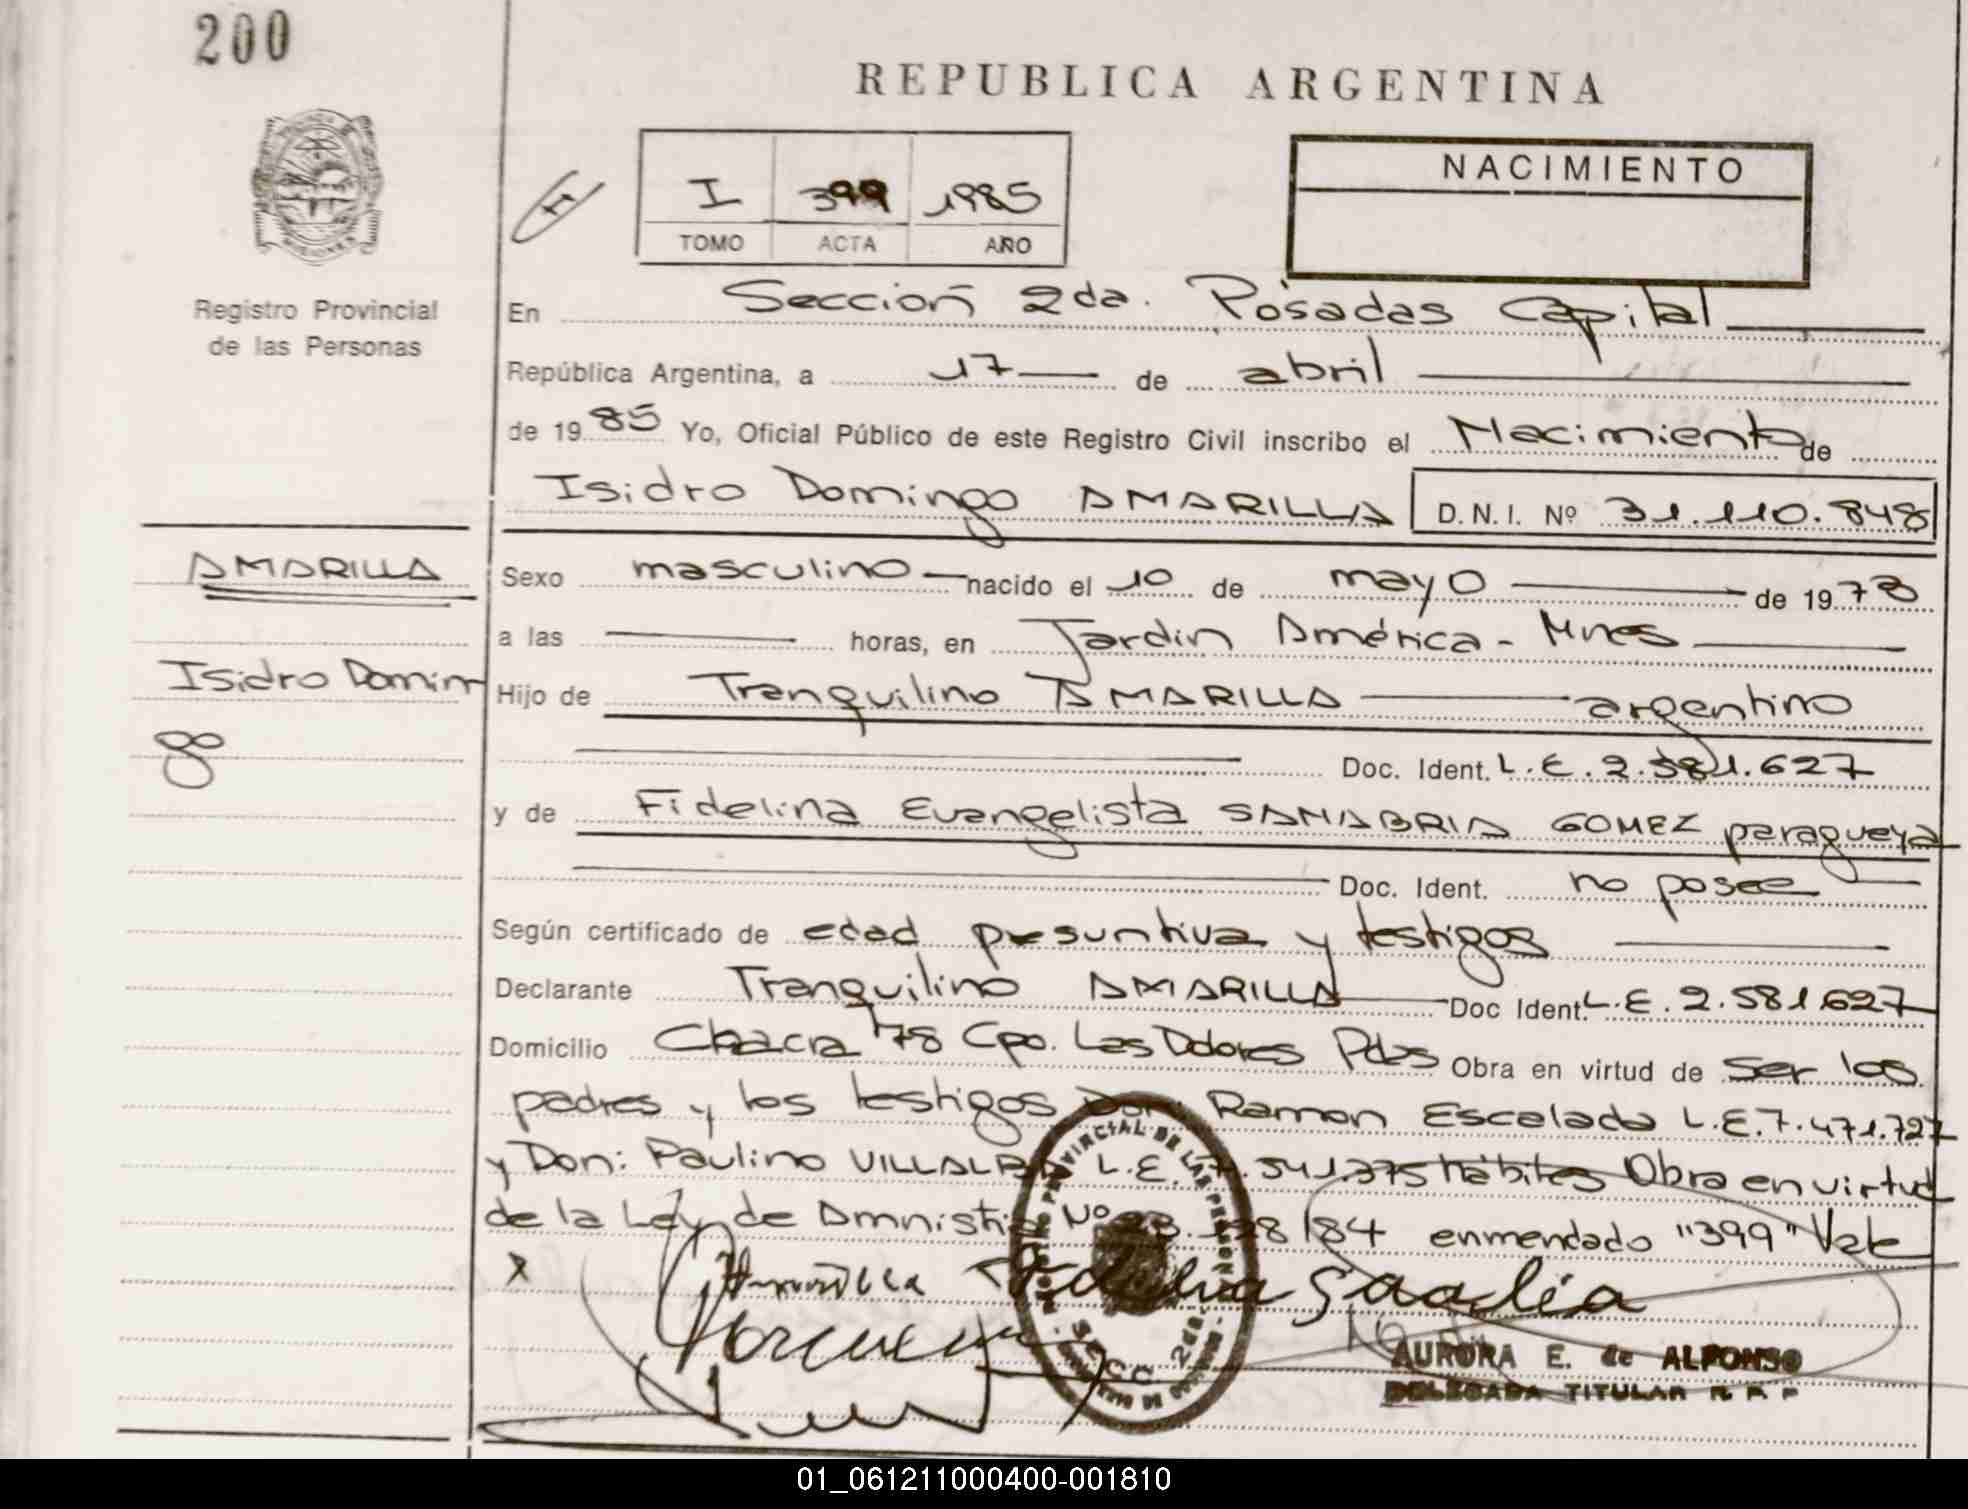 200
REPUBLICA ARGENTINA
I 399 1985
TOMO ACTA AÑO
NACIMIENTO
Registro Provincial
de las Personas
En Sección 2da. Posadas Capital
República Argentina, a 17 de abril
de 1985 Yo, Oficial Público de este Registro Civil inscribo el Nacimiento de
Isidro Domingo AMARILLA D.N.I. Nº 31.110.848
AMARILLA
Isidro Domin
go
Sexo masculino nacido el 10 de mayo de 1973
a las horas, en Jardin América - Mnes
Hijo de Tranquilino AMARILLA argentino
Doc. Ident. L.E. 2.581.627
y de Fidelina Evangelista SANABRIA GOMEZ paraguaya
Doc. Ident. no posee
Según certificado de edad presuntiva y testigos
Declarante Tranquilino AMARILLA Doc Ident. L.E. 2.581.627
Domicilio Chacra 78 Cpo. Las Dolores Pdas Obra en virtud de ser los
padres y los testigos Don: Ramon Escalada L.E. 7.471.727
y Don: Paulino VILLALBA L.E. 541.375 hábiles Obra en virtud
de la Ley de Amnistia Nº 84 enmendado "399" Vale
x Amarilla
SECC 2da.
AURORA E. de ALFONSO
DELEGADA TITULAR R P P
01_061211000400-001810